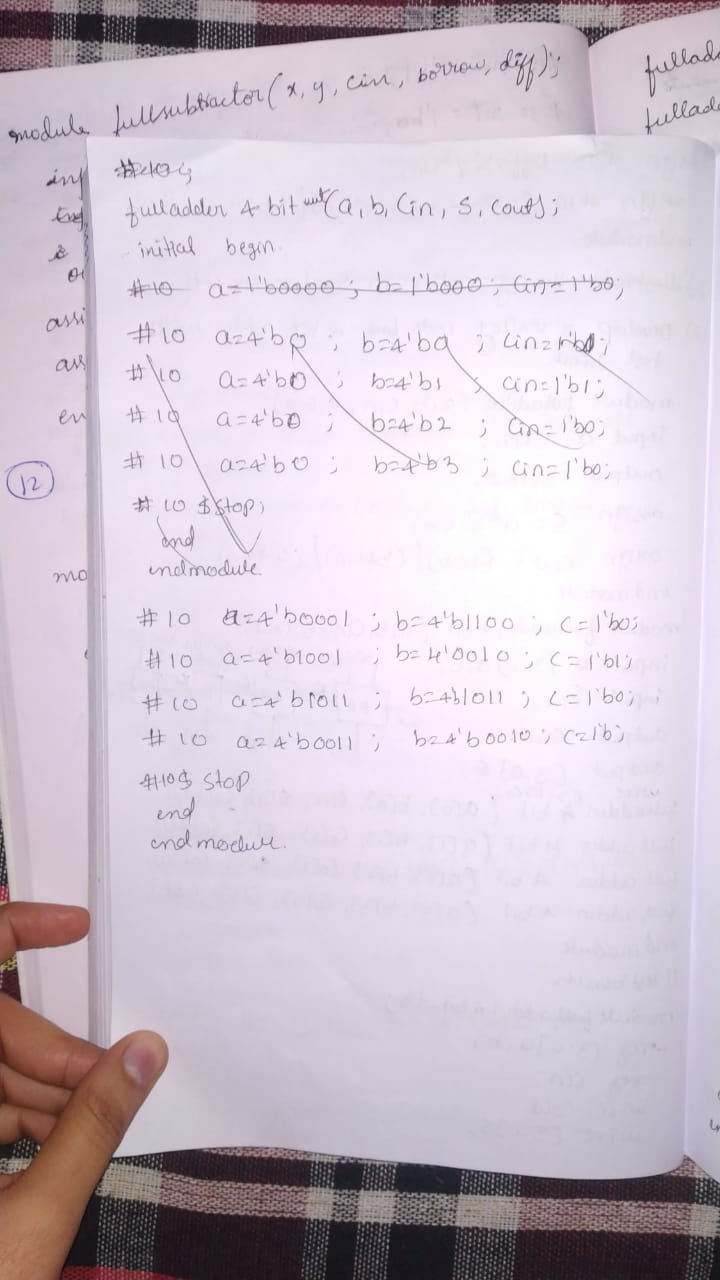 module fullsubtractor(x, y, cin, borrow, diff);
fullad
fullad
inp
assi
ass
en
12
mo
#10;
fulladder 4 bit uut(a, b, Cin, s, cout);
initial begin
#10 a=1'b0000; b=1'b000; Cin=1'b0;
#10 a=4'b0; b=4'b0; Cin=1'b0;
#10 a=4'b0; b=4'b1; Cin=1'b1;
#10 a=4'b0; b=4'b2; Cin=1'b0;
#10 a=4'b0; b=4'b3; Cin=1'b0;
#10 $stop;
end
endmodule.
#10 a=4'b0001; b=4'b1100; C=1'b0;
#10 a=4'b1001; b=4'0010; C=1'b1;
#10 a=4'b1011; b=4b1011; C=1'b0;
#10 a=4'b0011; b=4'b0010; C=1'b;
#10$ stop
end
endmodule.